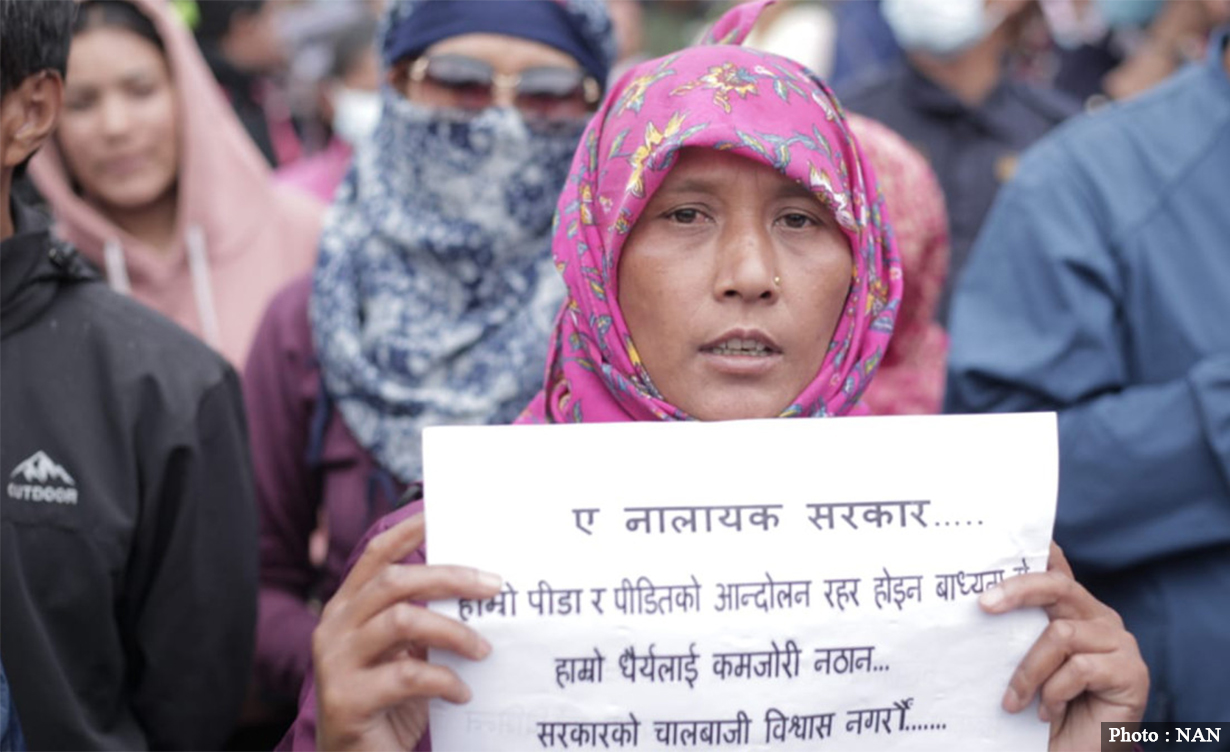 ए नालायक सरकार.....
हाम्रो पीडा र पीडितको आन्दोलन रहर होइन बाध्यता
हाम्रो धैर्यलाई कमजोरी नठान...
सरकारको चालबाजी विश्वास नगरौँ.......
OUTDOOR
Photo : NAN